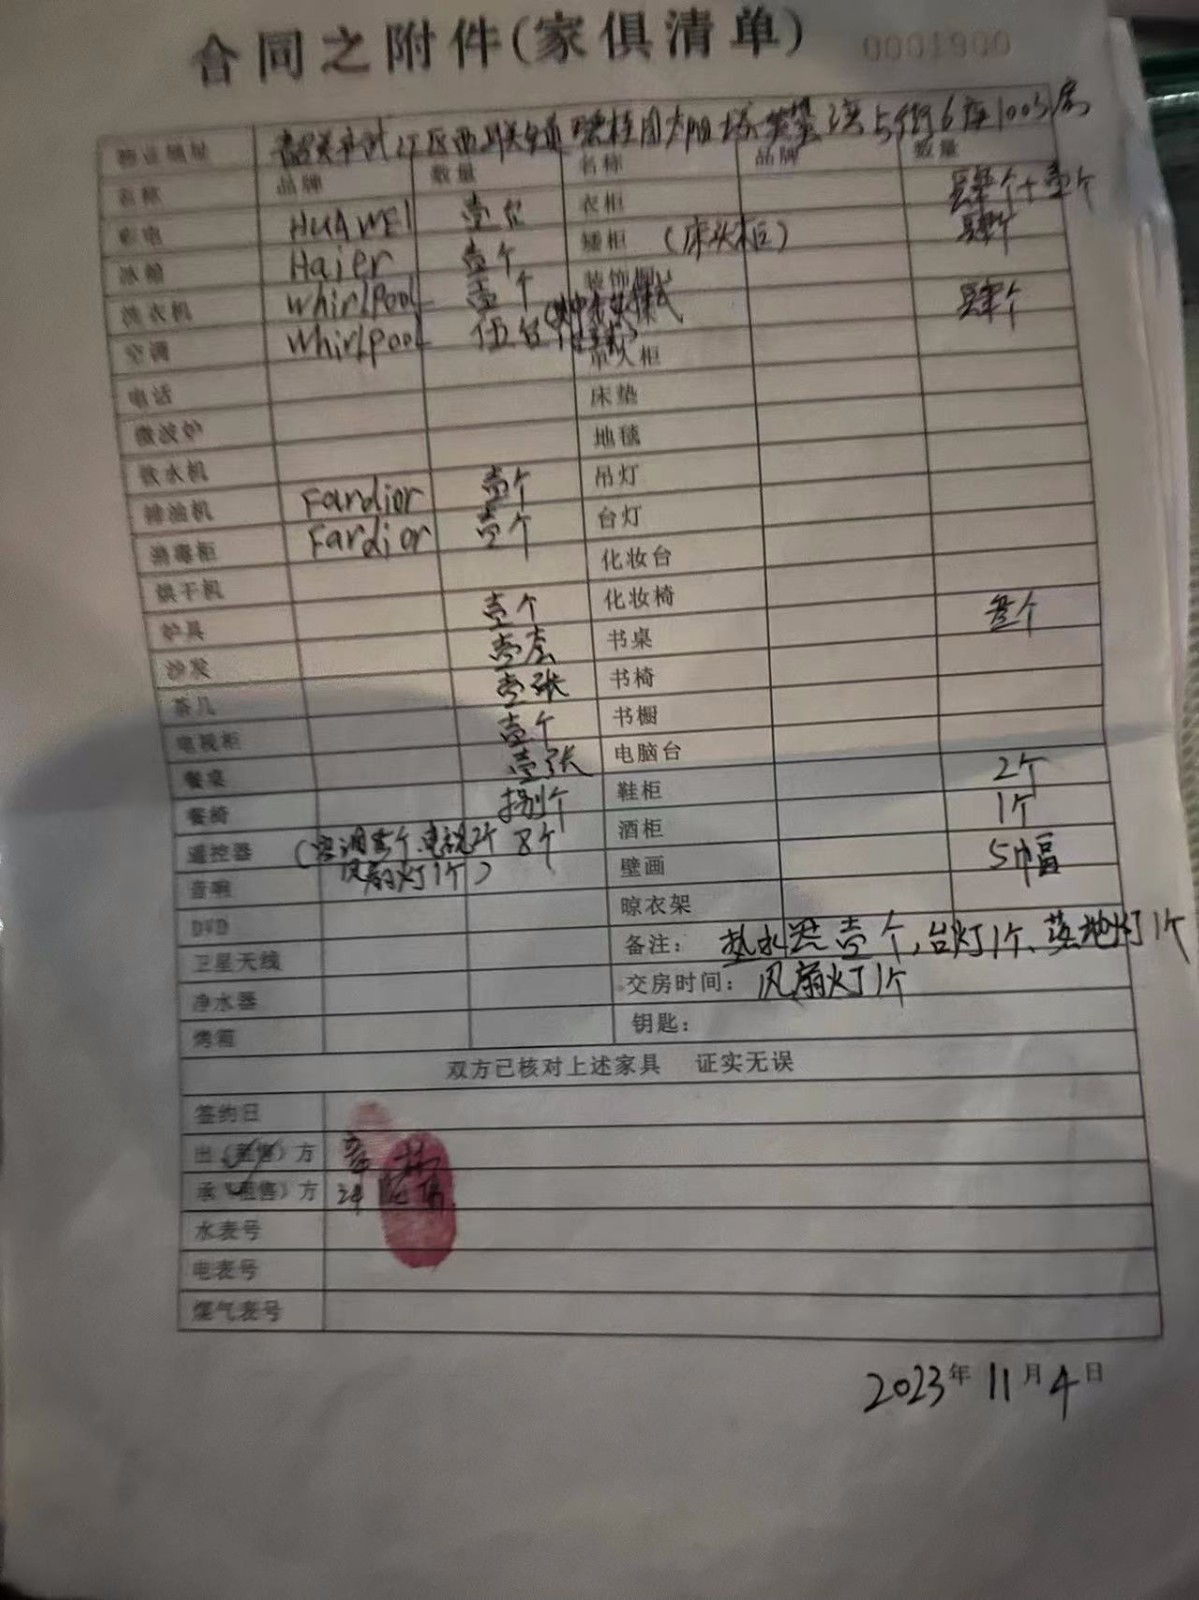 合同之附件(家俱清单) 0001900
物业地址 韶关市浈江区西联 碧桂园太阳城 街6座1003房
名称 品牌 数量 名称 品牌 数量
彩电 HUAWEI 壹台 衣柜 肆个+壹个
冰箱 Haier 壹个 矮柜 (床头柜) 肆个
洗衣机 Whirlpool 壹个 装饰柜
空调 Whirlpool 伍台 床头柜 肆个
电话 床垫
微波炉 地毯
饮水机 吊灯
排油机 Fardior 壹个 台灯
消毒柜 Fardior 壹个 化妆台
烘干机 化妆椅
炉具 壹个 书桌 叁个
沙发 壹套 书椅
茶几 壹张 书橱
电视柜 壹个 电脑台
餐桌 壹张 鞋柜 2个
餐椅 捌个 酒柜 1个
遥控器 (空调 个、电视2个 8个 壁画 5幅
音响 风扇灯1个) 晾衣架
DVD 备注: 热水器壹个,台灯1个、落地灯1个
卫星天线 交房时间: 风扇灯1个
净水器 钥匙:
烤箱
双方已核对上述家具 证实无误
签约日
出(租售)方
承(租售)方
水表号
电表号
煤气表号
2023年11月4日